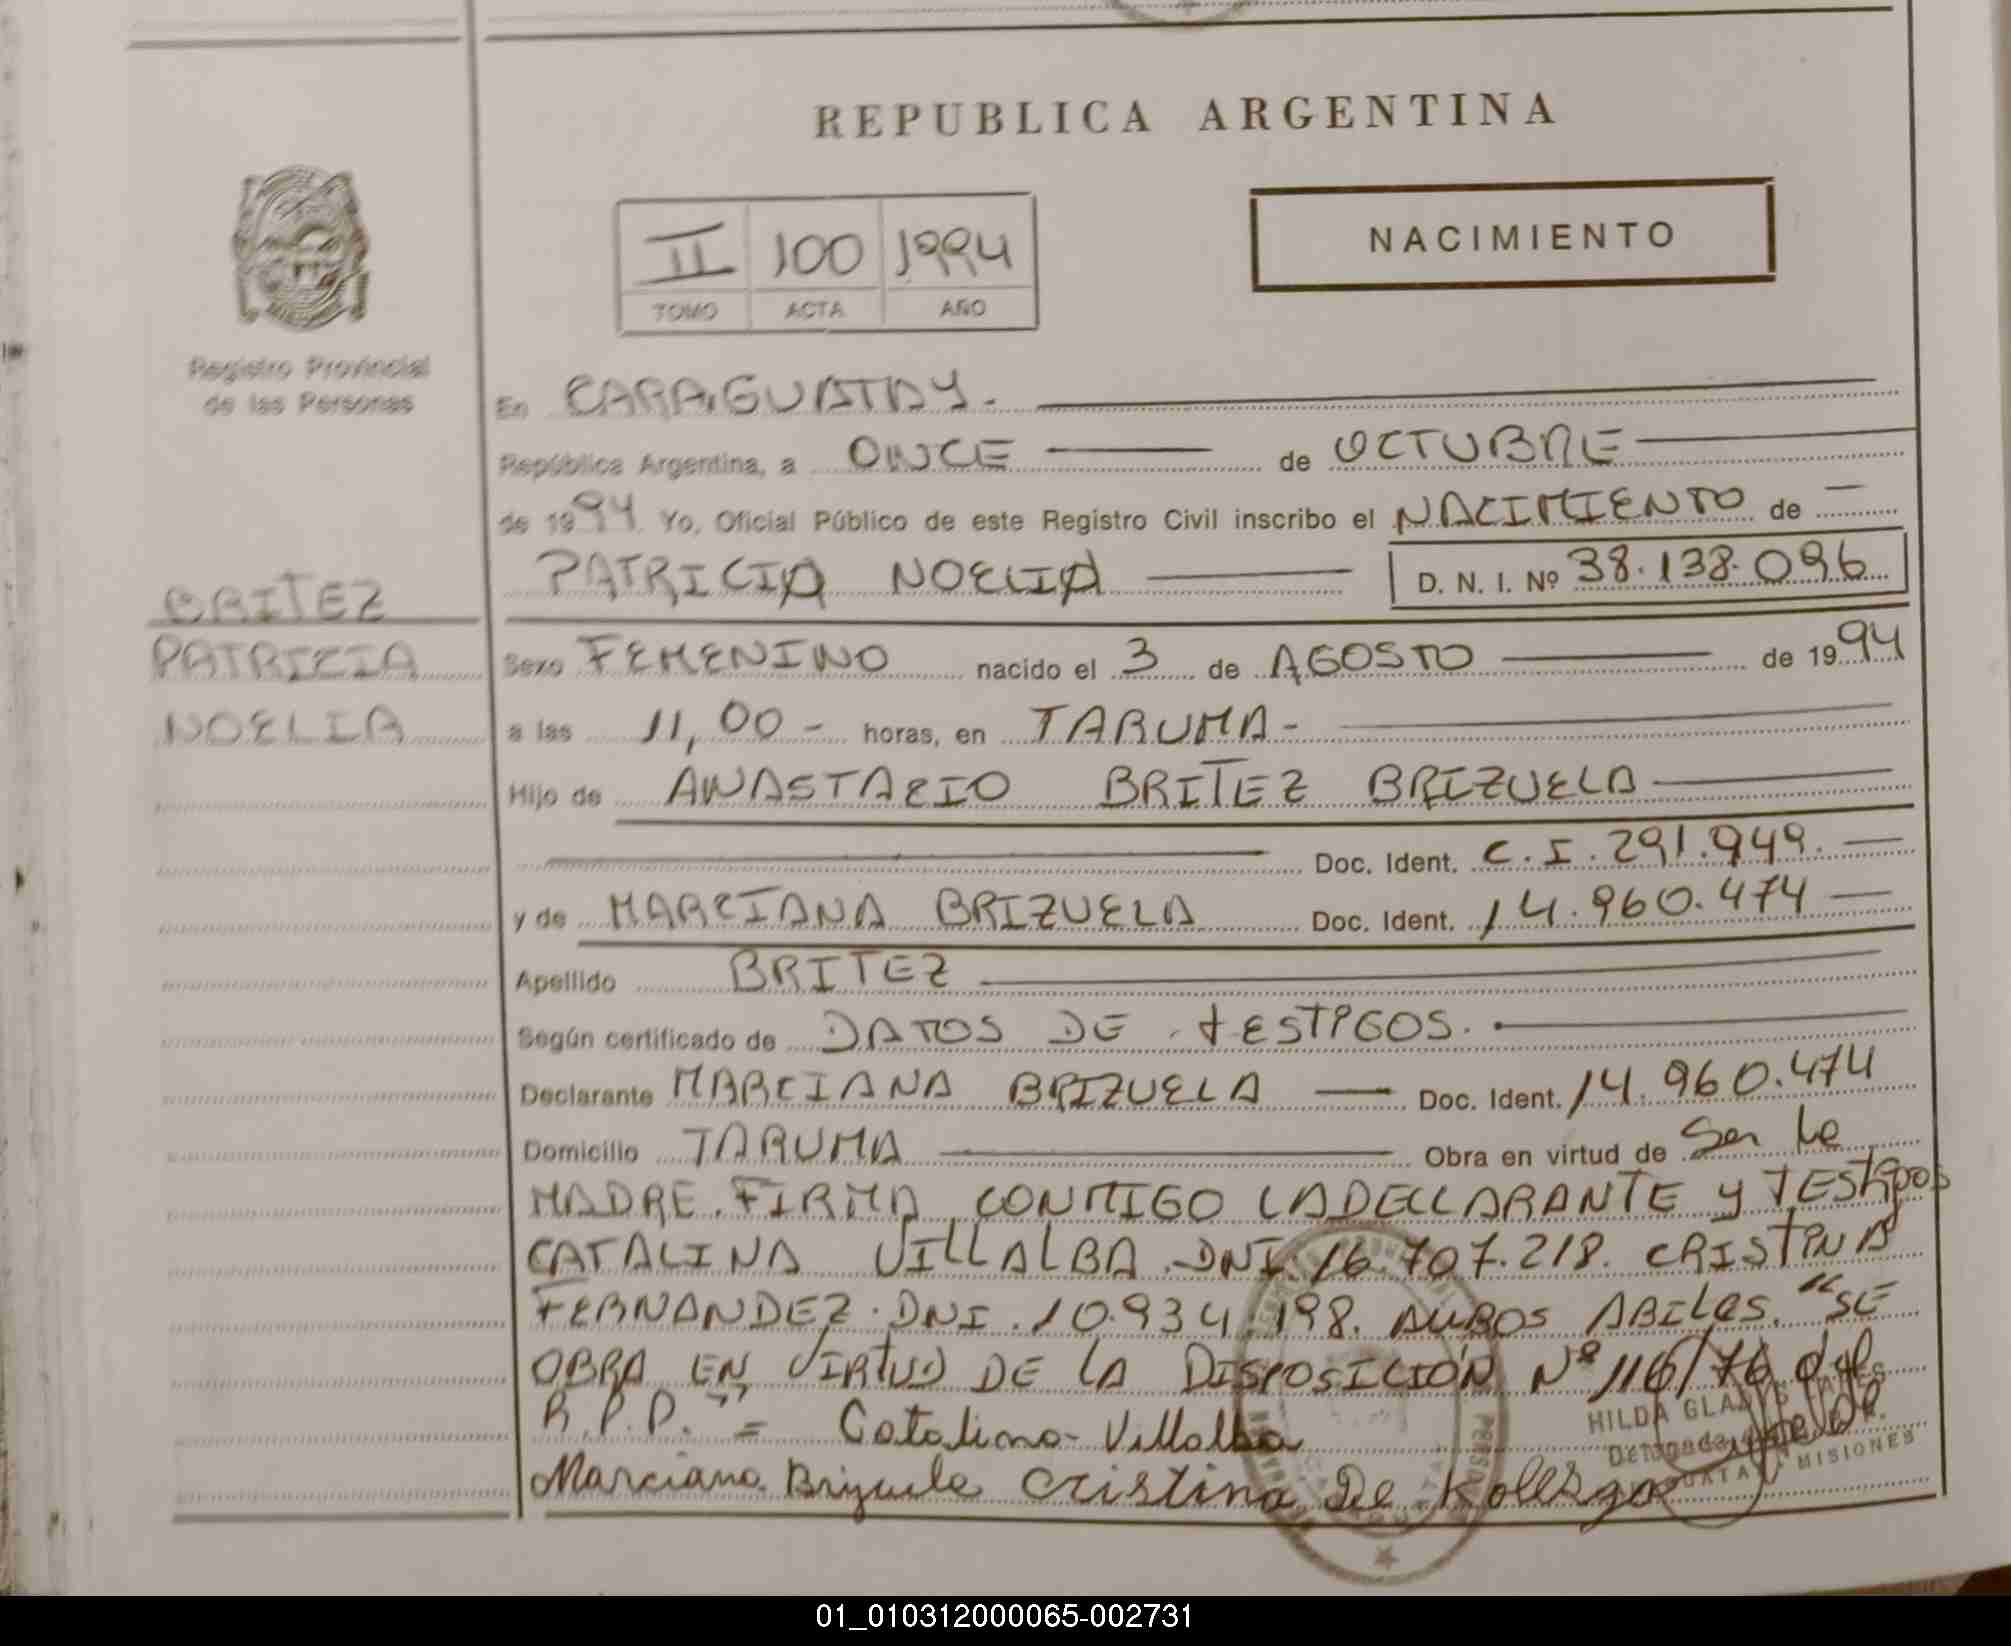 REPUBLICA ARGENTINA
II 100 1994
TOMO ACTA AÑO
NACIMIENTO
Registro Provincial
de las Personas
BRITEZ
PATRICIA
NOELIA
En CARAGUATAY.
República Argentina, a ONCE de OCTUBRE
de 1994. Yo, Oficial Público de este Registro Civil inscribo el NACIMIENTO de
PATRICIA NOELIA D. N. I. Nº 38.138.096
Sexo FEMENINO nacido el 3 de AGOSTO de 1994
a las 11,00 - horas, en TARUMA -
Hijo de ANASTACIO BRITEZ BRIZUELA
Doc. Ident. C. I. 291.949.
y de MARCIANA BRIZUELA Doc. Ident. 14.960.474
Apellido BRITEZ
Según certificado de DATOS DE TESTIGOS.
Declarante MARCIANA BRIZUELA Doc. Ident. 14.960.474
Domicilio TARUMA Obra en virtud de Ser la
MADRE. FIRMA CONMIGO LA DECLARANTE y TESTIGOS
CATALINA VILLALBA. DNI. 16.707.218. CRISTINA
FERNANDEZ. DNI. 10.934.198. AMBOS ABILES. "SE
OBRA EN VIRTUD DE LA DISPOSICIÓN Nº 116/76 del
R.P.P." = Catalina Villalba
HILDA GLADYS
Delegada
MISIONES
Marciana Brizuela Cristina De
01_010312000065-002731